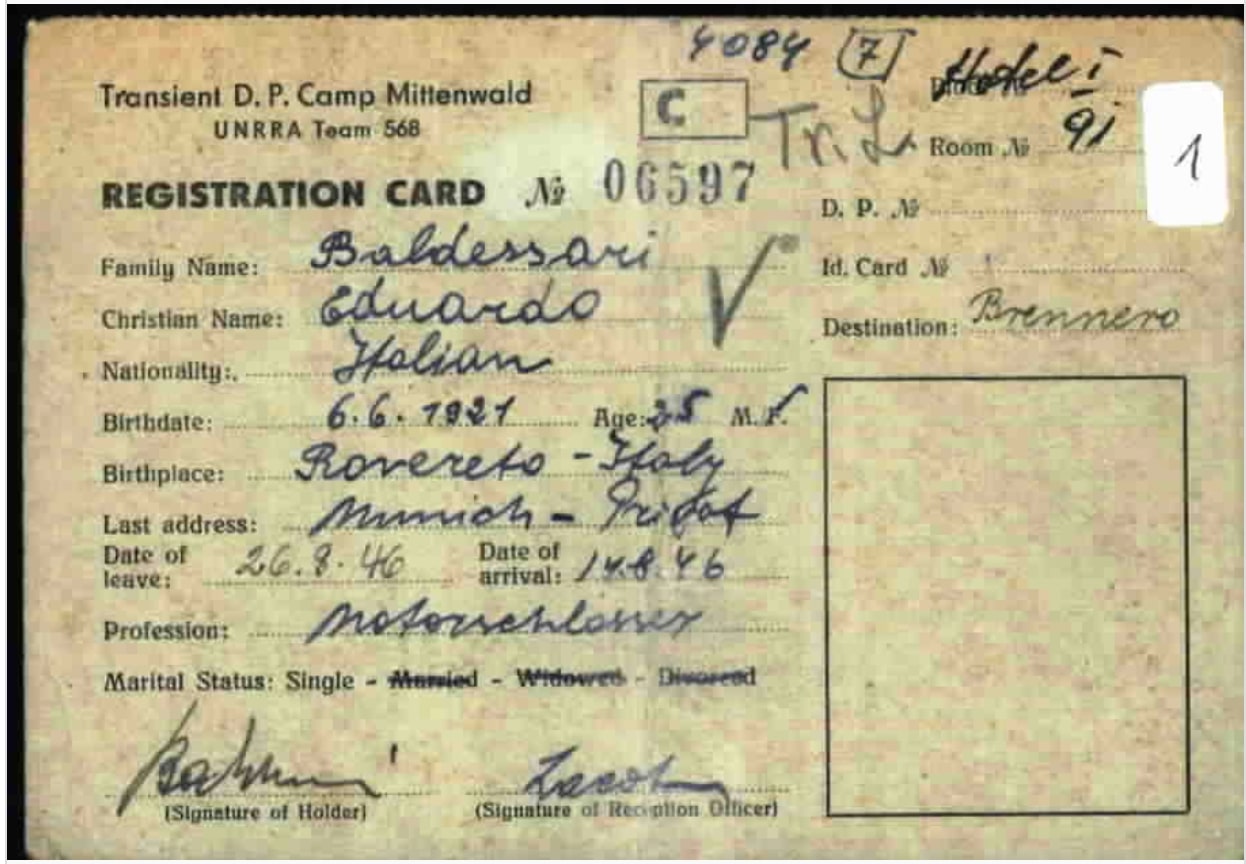 4084 7
Transient D. P. Camp Mittenwald
UNRRA Team 568
C
Tr. L.
Hotel I
Room № 91
1
REGISTRATION CARD № 06597
D. P. №
Family Name: Baldessari
Id. Card №
Christian Name: Eduardo
Destination: Brennero
Nationality: Italian
Birthdate: 6. 6. 1921 Age: 25 M. F.
Birthplace: Rovereto - Italy
Last address: Munich -
Date of leave: 26. 8. 46 Date of arrival: 14. 8. 46
Profession: Motorschlosser
Marital Status: Single - Married - Widowed - Divorced
(Signature of Holder) (Signature of Reception Officer)